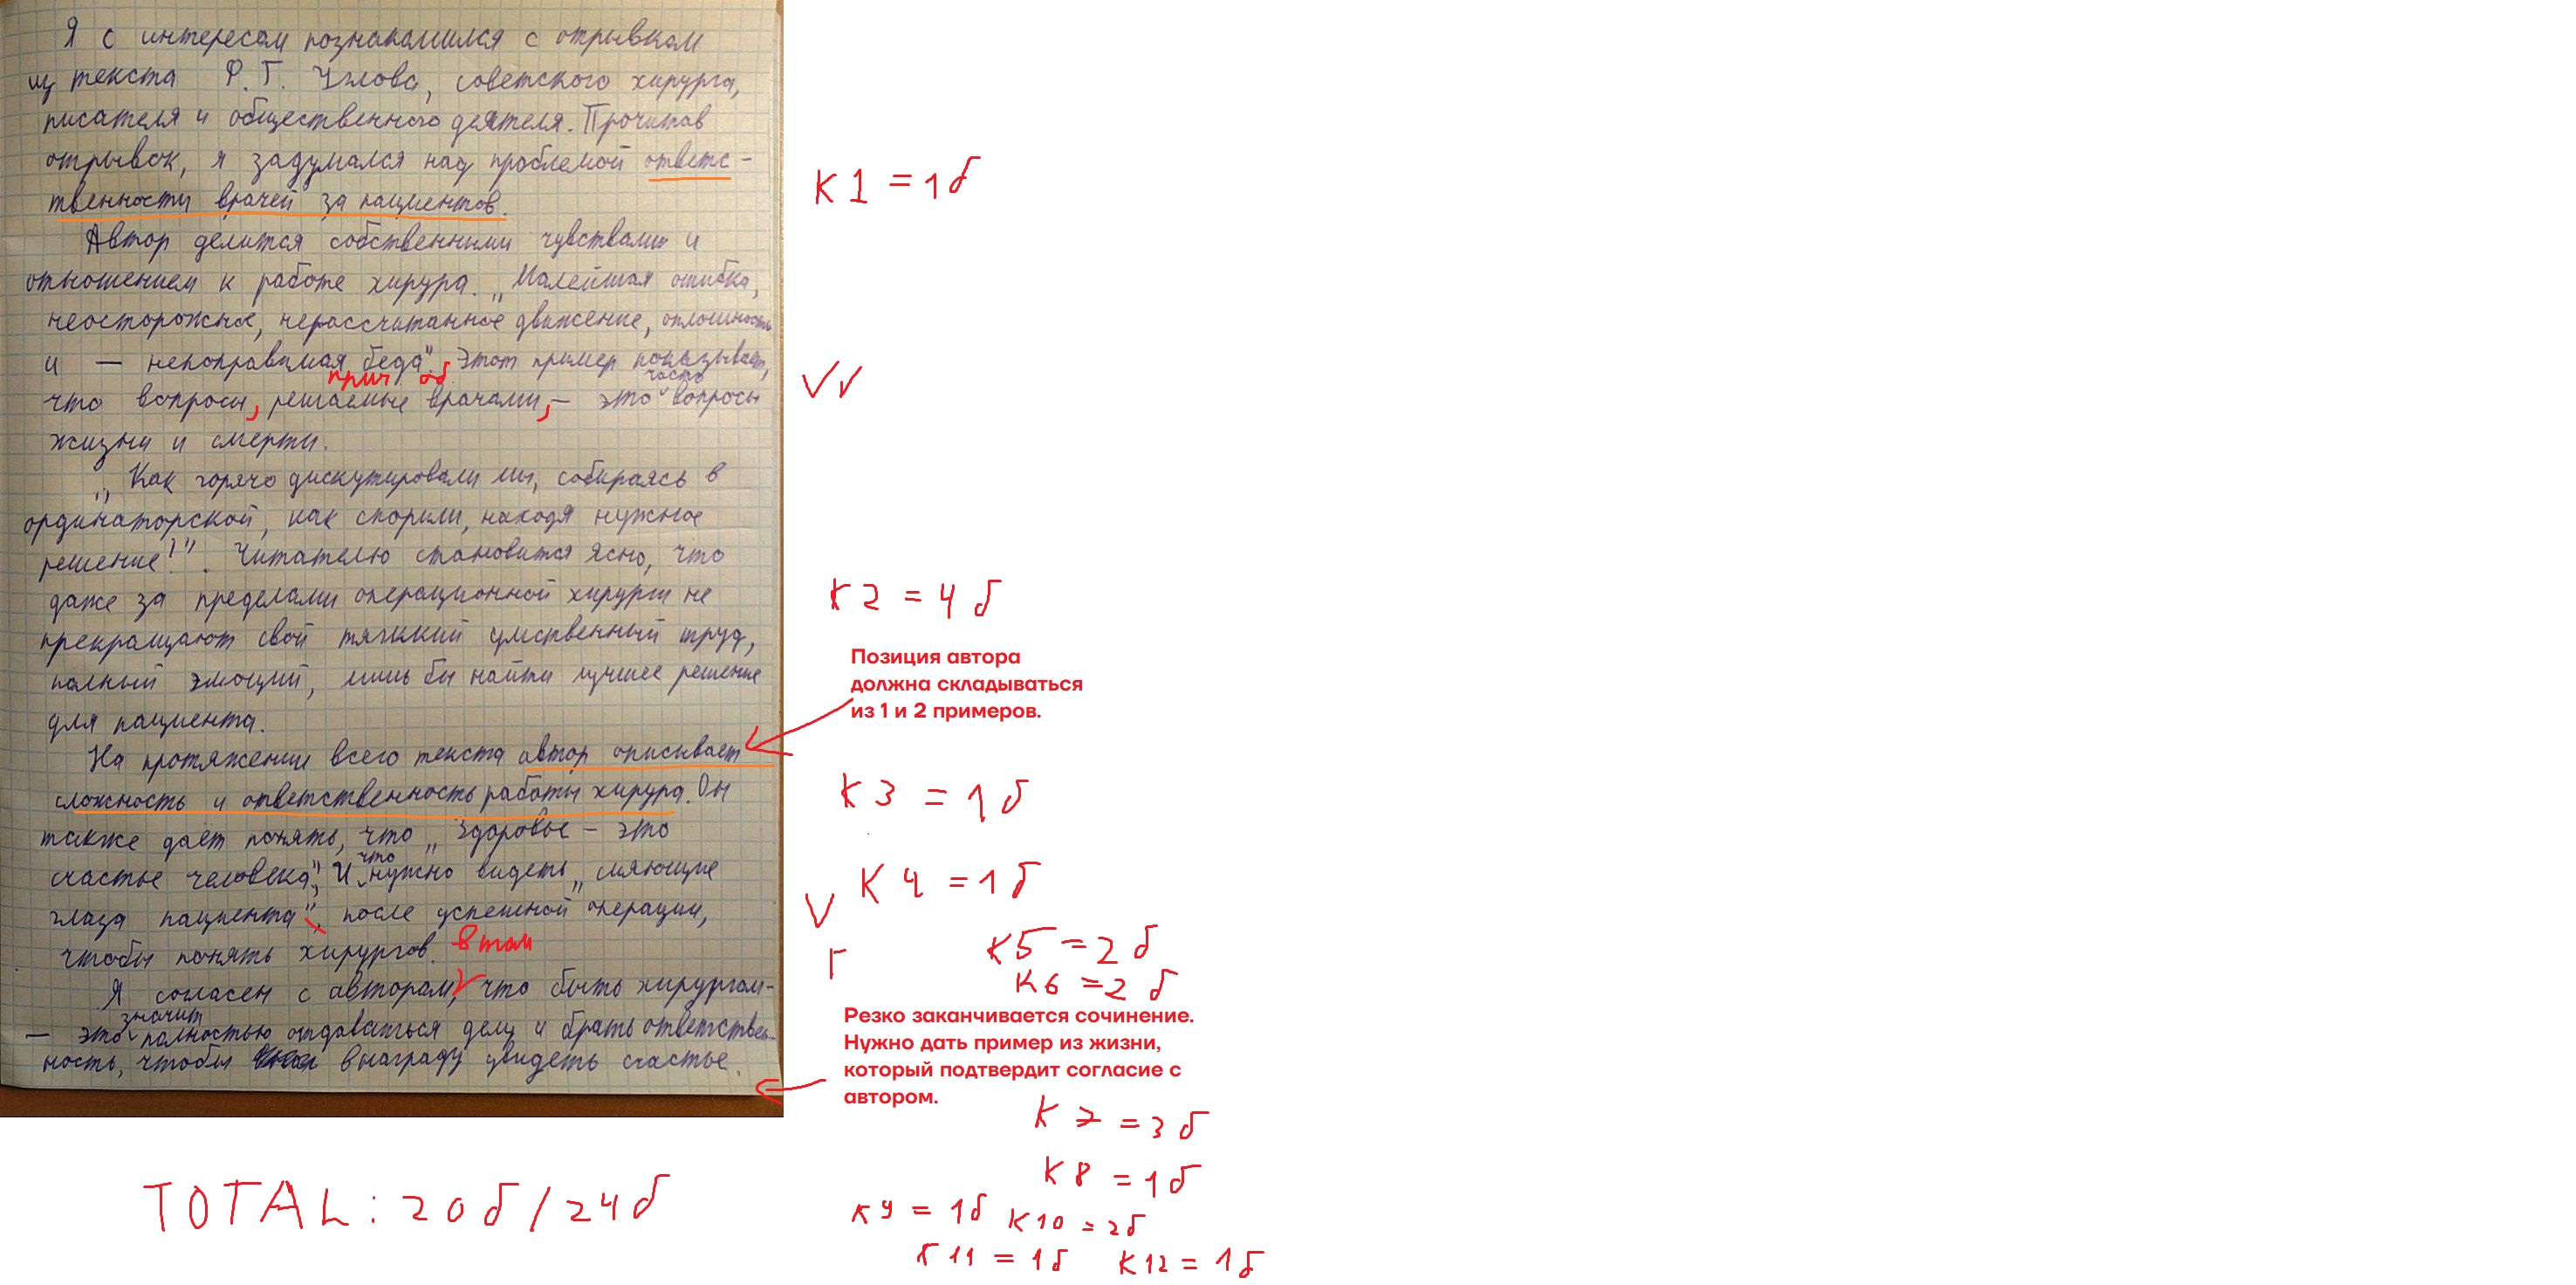 Я с интересом познакомился с отрывком
из текста Ф. Г. Углова, советского хирурга,
писателя и общественного деятеля. Прочитав
отрывок, я задумался над проблемой ответс-
твенности врачей за пациентов.
Автор делится собственными чувствами и
отношением к работе хирурга. „Малейшая ошибка,
неосторожное, нерассчитанное движение, оплошность
и — непоправимая беда". Этот пример показывает,
прич об
часто
что вопросы, решаемые врачами, — это вопросы
жизни и смерти.
„Как горячо дискутировали мы, собираясь в
ординаторской, как спорили, находя нужное
решение!". Читателю становится ясно, что
даже за пределами операционной хирурги не
прекращают свой тяжкий умственный труд,
полный эмоций, лишь бы найти лучшее решение
для пациента.
На протяжении всего текста автор описывает
сложность и ответственность работы хирурга. Он
также даёт понять, что „здоровье – это
что
счастье человека", И нужно видеть „сияющие
глаза пациента", после успешной операции,
чтобы понять хирургов.
в том
Я согласен с автором, что быть хирургом-
значит
— это полностью отдаваться делу и брать ответствен-
ность, чтобы в награду увидеть счастье.
К1 = 1б
К2 = 4б
Позиция автора
должна складываться
из 1 и 2 примеров.
К3 = 1б
К4 = 1б
Г
К5 = 2б
К6 = 2б
Резко заканчивается сочинение.
Нужно дать пример из жизни,
который подтвердит согласие с
автором.
К7 = 3б
К8 = 1б
К9 = 1б К10 = 2б
К11 = 1б К12 = 1б
TOTAL: 20б/24б